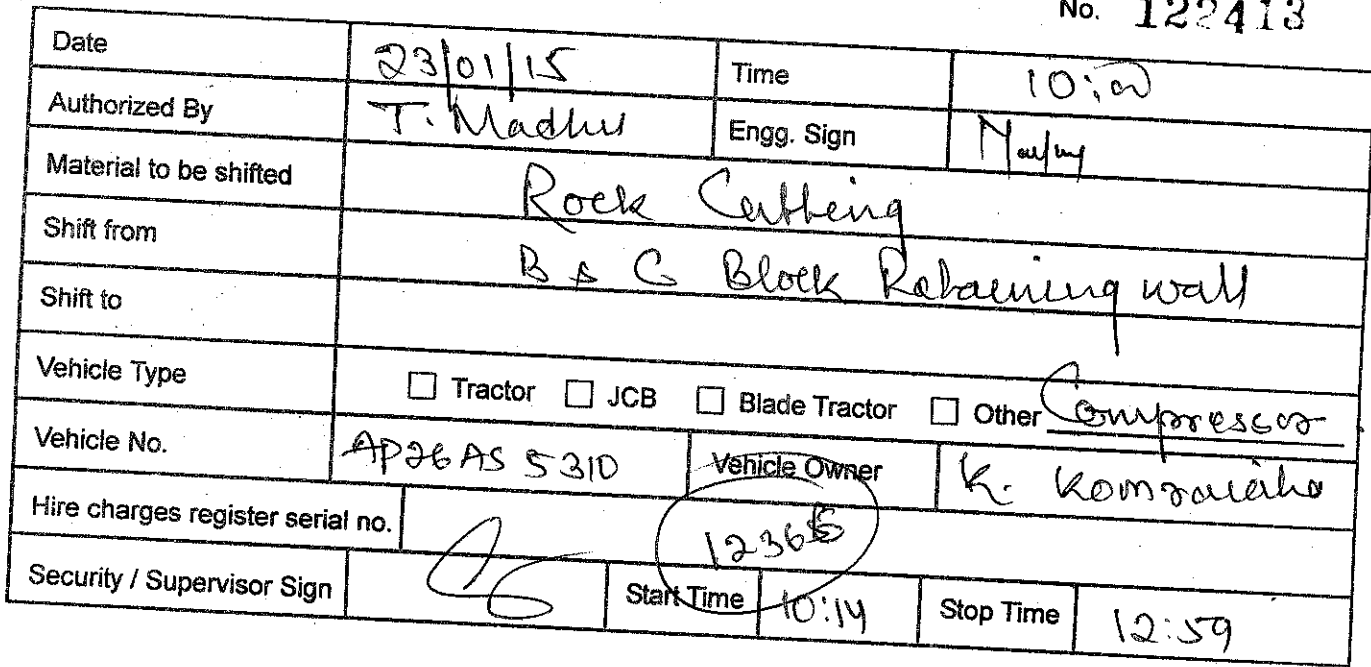 No. 122413
Date 23/01/15 Time 10:00
Authorized By T. Madhu Engg. Sign
Material to be shifted Rock Cutting
Shift from B & C Block Retaining wall
Shift to
Vehicle Type ☐ Tractor ☐ JCB ☐ Blade Tractor ☐ Other Compressor
Vehicle No. AP26AS 5310 Vehicle Owner K. Komraiaha
Hire charges register serial no. 12365
Security / Supervisor Sign Start Time 10:14 Stop Time 12:59